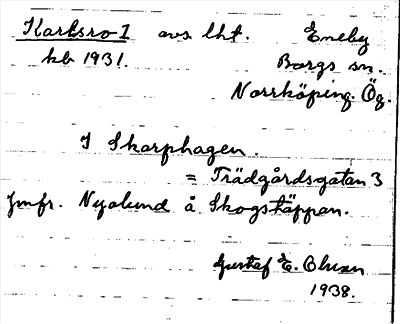 Karlsro 1 avs. lht. Eneby
kb 1931. Borgs sn.
Norrköping. Ög.
I Skarphagen.
= Trädgårdsgatan 3
Jmfr. Nyalund å Skogstäppan.
Gustaf E. Olsson
1938.